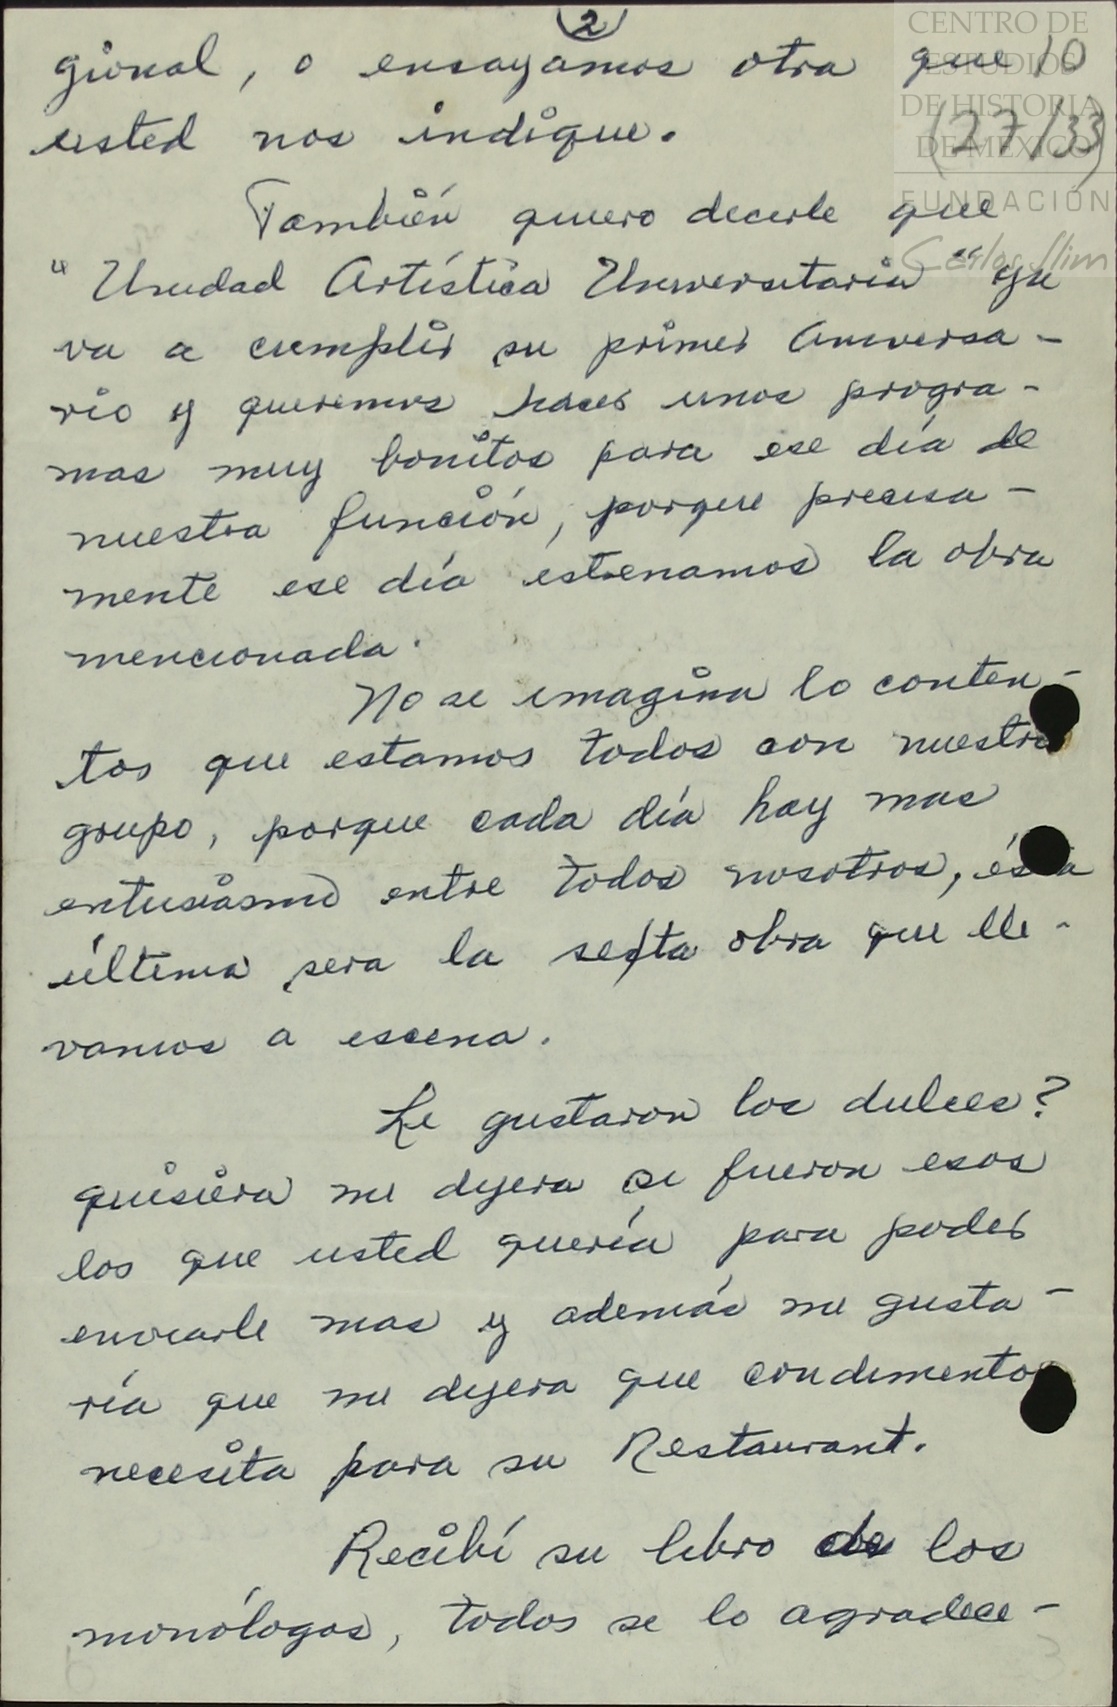 (2)
CENTRO DE
ESTUDIOS
DE HISTORIA
DE MÉXICO
FUNDACIÓN
Carlos Slim
10
(27/33)
gional, o ensayamos otra que
usted nos indique.
También quiero decirle que
"Unidad Artística Universitaria" ya
va a cumplir su primer aniversa-
rio y queremos hacer unos progra-
mas muy bonitos para ese día de
nuestra función, porque precisa-
mente ese día estrenamos la obra
mencionada.
No se imagina lo conten-
tos que estamos todos con nuestro
grupo, porque cada día hay mas
entusiasmo entre todos nosotros, ésta
última sera la sexta obra que lle-
vamos a escena.
Le gustaron los dulces?
quisiera me dijera si fueron esos
los que usted quería para poder
enviarle mas y además me gusta-
ría que me dijera que condimentos
necesita para su Restaurant.
Recibí su libro de los
monólogos, todos se lo agradece-